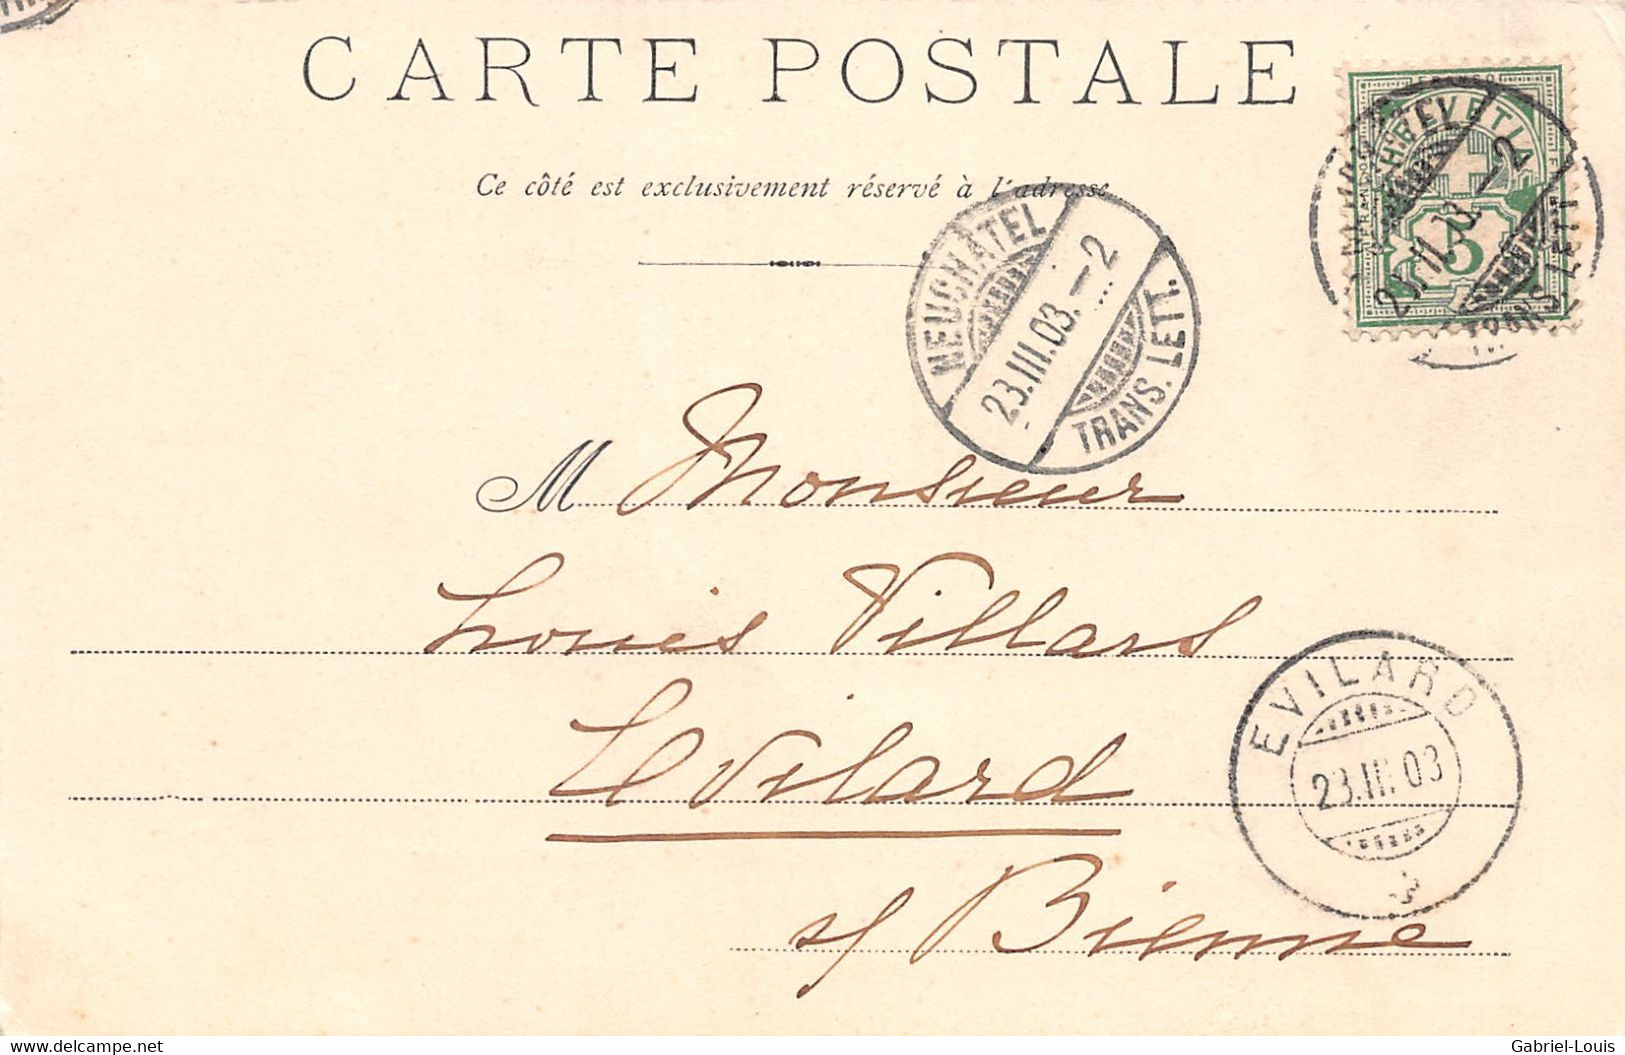 CARTE POSTALE
Ce côté est exclusivement réservé à l'adresse
FRANCO
HELVETIA
5
NEUCHATEL
23.III.03.–2
TRANS. LETT.
M Monsieur
Louis Villars
Evilard
s/ Bienne
EVILARD
23.III.03
www.delcampe.net
Gabriel-Louis